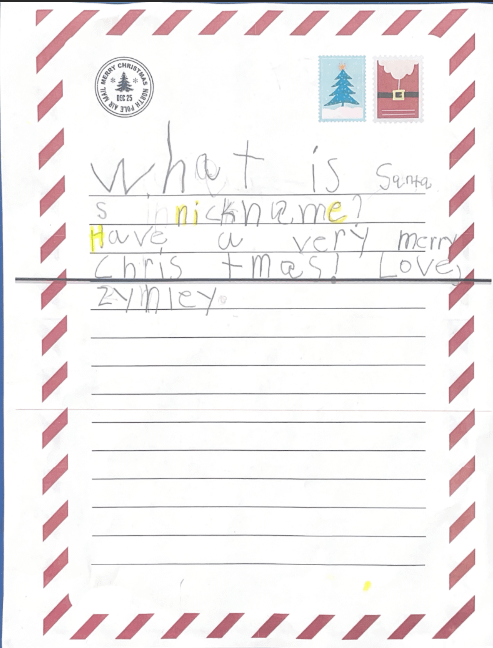 MERRY CHRISTMAS
DEC 25
NORTH POLE AIR MAIL
What is Santa
s nickname?
Have a very merry
Chris tmas! Love,
zymley.